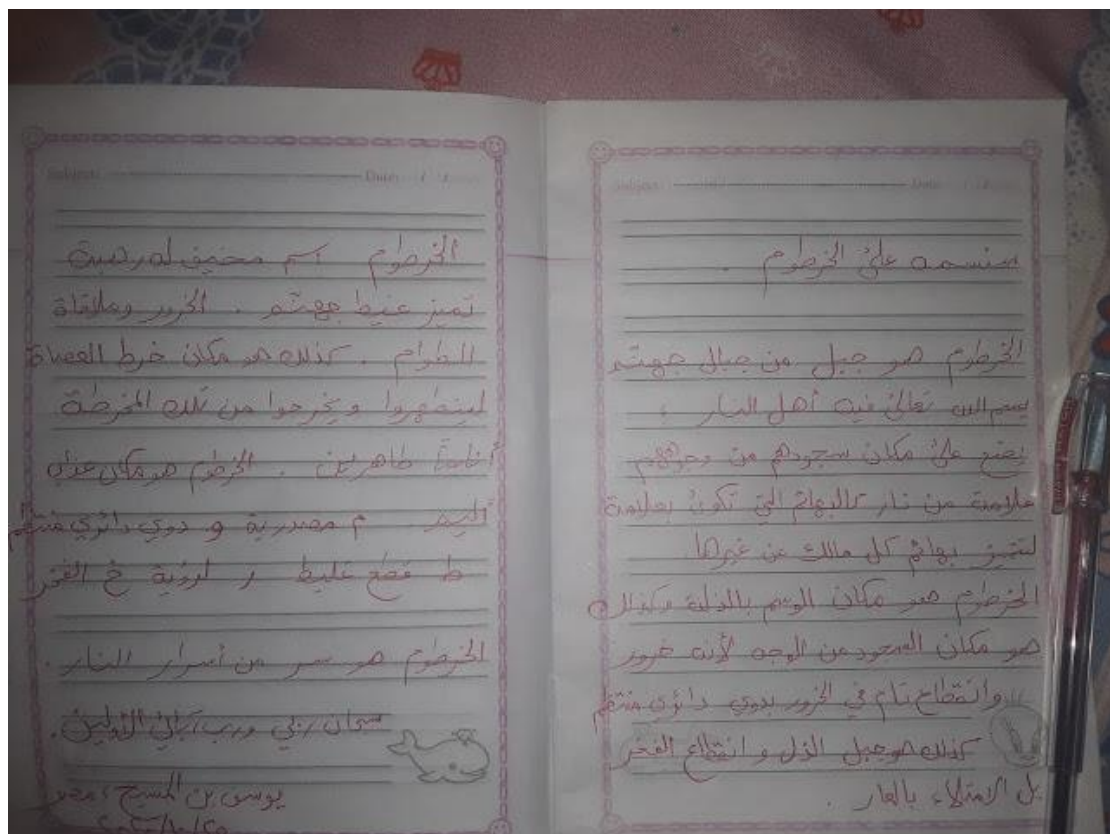 Subject: Date: / /
سنسمه على الخرطوم .
الخرطوم هو جبل من جبال جهنم
يسم الله تعالى فيه أهل النار ؛
يضع على مكان سجودهم من وجوههم
علامة من نار كالبهائم التي تكون بعلامة
لتتميز بهائم كل مالك عن غيرها
الخرطوم هو مكان الوسم بالذلة وكذلك
هو مكان السجود من الوجه لأنه خرور
وانقطاع تام في الخرور بدوي دائري منتظم
كذلك هو جبل الذل و انقطاع الفخر
بل الامتلاء بالعار .
Subject: Date: / /
الخرطوم اسم مخيف له رهبة
تميز غيظ جهنم . الخرور وملاقاة
الطوام . كذلك هو مكان خرط العصاة
ليتطهروا ويخرجوا من تلك المخرطة
أناساً طاهرين . الخرطوم هو مكان عذاب
أليم م مصدرية و دوي دائري منتظم
ط قطع غليظ ر لرؤية خ الفخر
الخرطوم هو سر من أسرار النار .
سبحان ربي ورب آبائي الأولين .
يوسف بن المسيح ، مصر